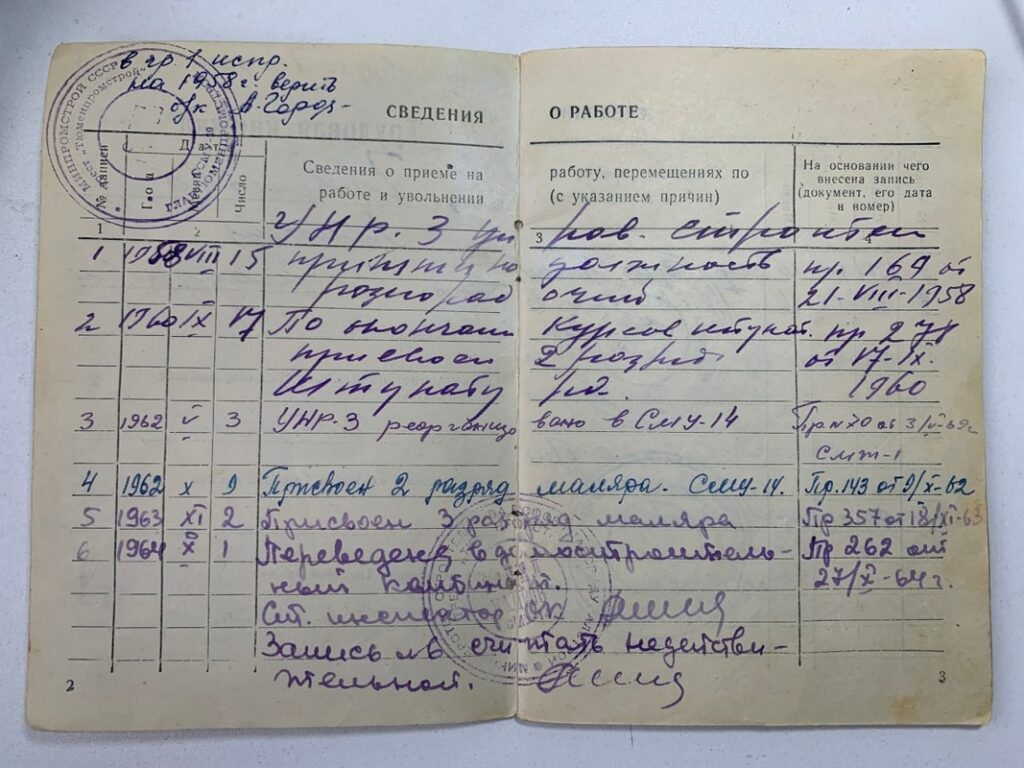 в гр. 1 испр.
на 1958 г. верить
о/к
МИНПРОМСТРОЙ СССР
трест "Тюменпромстрой"
СВЕДЕНИЯ О РАБОТЕ
№ записи
Число
Сведения о приеме на работу, перемещениях по
работе и увольнении (с указанием причин)
На основании чего
внесена запись
(документ, его дата
и номер)
1 2 3 4
УНР. 3
1 1958 VIII 15 должность пр. 169 от
21-VIII-1958
2 1960 IX 17 По окончан курсов пр 278
присвоен 2 разряд от 17-IX.
штукату ра. 1960
3 1962 V 3 УНР-3 реорганизо вано в СМУ-14 Пр №70 от
4 1962 X 9 Присвоен 2 разряд маляра. Сму-14. Пр. 143 от 9/X-62
5 1963 XI 2 Присвоен 3 разряд маляра Пр 357 от 18/XI-63
6 1964 XI 1 Переведена в домостроитель- Пр 262 от
ный комбинат. 27/X-64 г.
Ст. инспектор ОК
Запись №6 считать недействи-
тельной.
2 3